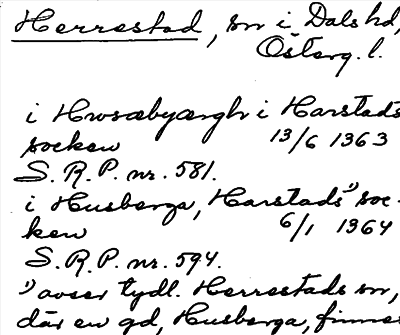 Herrestad, sn i Dals hd,
Österg. l.
i Hwsæbyærgh i Harstads
socken 13/6 1363
S. R. P. nr. 581.
i Husberga, Harstads¹⁾ soc-
ken 6/1 1364
S. R. P. nr. 594.
¹⁾ avser tydl. Herrestads sn,
där en gd, Husberga, finnes